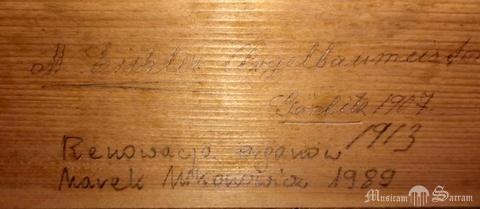 M Eichler Orgelbaumeister
Görlitz 1907
1913
Renowacja organów
Marek 1989
Musicam Sacram